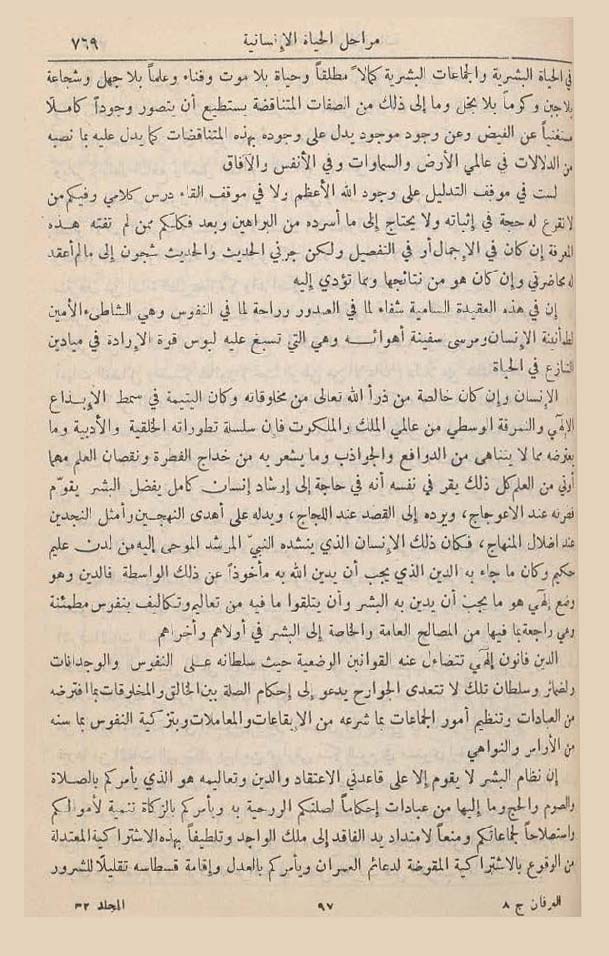 مراحل الحياة الإنسانية ٧٦٩
في الحياة البشرية والجماعات البشرية كمالاً مطلقاً وحياة بلا موت وفناء وعلماً بلا جهل وشجاعة
بلا جبن وكرماً بلا بخل وما إلى ذلك من الصفات المتناقضة يستطيع أن يتصور وجوداً كاملاً
مستغنياً عن الفيض وعن وجود موجود يدل على وجوده بهذه المتناقضات كما يدل عليه بما نصبه
من الدلالات في عالمي الأرض والسماوات وفي الأنفس والآفاق
لست في موقف التدليل على وجود الله الأعظم ولا في موقف القاء درس كلامي وفيكم من
لا تقرع له حجة في إثباته ولا يحتاج إلى ما أسرده من البراهين وبعد فكلكم ممن لم تفته هذه
المعرفة إن كان في الإجمال أو في التفصيل ولكن جرني الحديث والحديث شجون إلى ما لم أعقد
له محاضرتي وإن كان هو من نتائجها ومما تؤدي إليه
إن في هذه العقيدة السامية شفاء لما في الصدور وراحة لما في النفوس وهي الشاطىء الأمين
لطمأنينة الإنسان ومرسى سفينة أهوائه وهي التي تسبغ عليه لبوس قوة الإرادة في ميادين
التنازع في الحياة
الإنسان وإن كان خالصة من ذرأ الله تعالى من مخلوقاته وكان اليتيمة في سمط الإبداع
الإلهي والنمرقة الوسطى من عالمي الملك والملكوت فإن سلسلة تطوراته الخلقية والأدبية وما
يعترضه مما لا يتناهى من الدوافع والجواذب وما يشعر به من خداج الفطرة ونقصان العلم مهما
أوتي من العلم كل ذلك يقر في نفسه أنه في حاجة إلى إرشاد إنسان كامل يفضل البشر يقوّم
فطرته عند الاعوجاج، ويرده إلى القصد عند اللجاج، ويدله على أهدى النهجين وأمثل النجدين
عند اضلال المنهاج، فكان ذلك الإنسان الذي ينشده النبيّ المرشد الموحى إليه من لدن عليم
حكيم وكان ما جاء به الدين الذي يجب أن يدين الله به مأخوذاً عن ذلك الواسطة فالدين وهو
وضع إلهي هو ما يجب أن يدين به البشر وأن يتلقوا ما فيه من تعاليم وتكاليف بنفوس مطمئنة
وهي راجعة بما فيها من المصالح العامة والخاصة إلى البشر في أولاهم وأخراهم
الدين قانون إلهي تتضاءل عنه القوانين الوضعية حيث سلطانه على النفوس والوجدانات
والضمائر وسلطان تلك لا تتعدى الجوارح يدعو إلى إحكام الصلة بين الخالق والمخلوقات بما افترضه
من العبادات وتنظيم أمور الجماعات بما شرعه من الإيقاعات والمعاملات وبتزكية النفوس بما سنه
من الأوامر والنواهي
إن نظام البشر لا يقوم إلا على قاعدتي الاعتقاد والدين وتعاليمه هو الذي يأمركم بالصلاة
والصوم والحج وما إليها من عبادات إحكاماً لصلتكم الروحية به ويأمركم بالزكاة تنمية لأموالكم
واستصلاحاً لجماعاتكم ومنعاً لامتداد يد الفاقد إلى ملك الواجد وتلطيفاً بهذه الاشتراكية المعتدلة
من الوقوع بالاشتراكية المقوضة لدعائم العمران ويأمركم بالعدل وإقامة قسطاسه تقليلاً للشرور
العرفان ج ٨ ٩٧ المجلد ٣٢